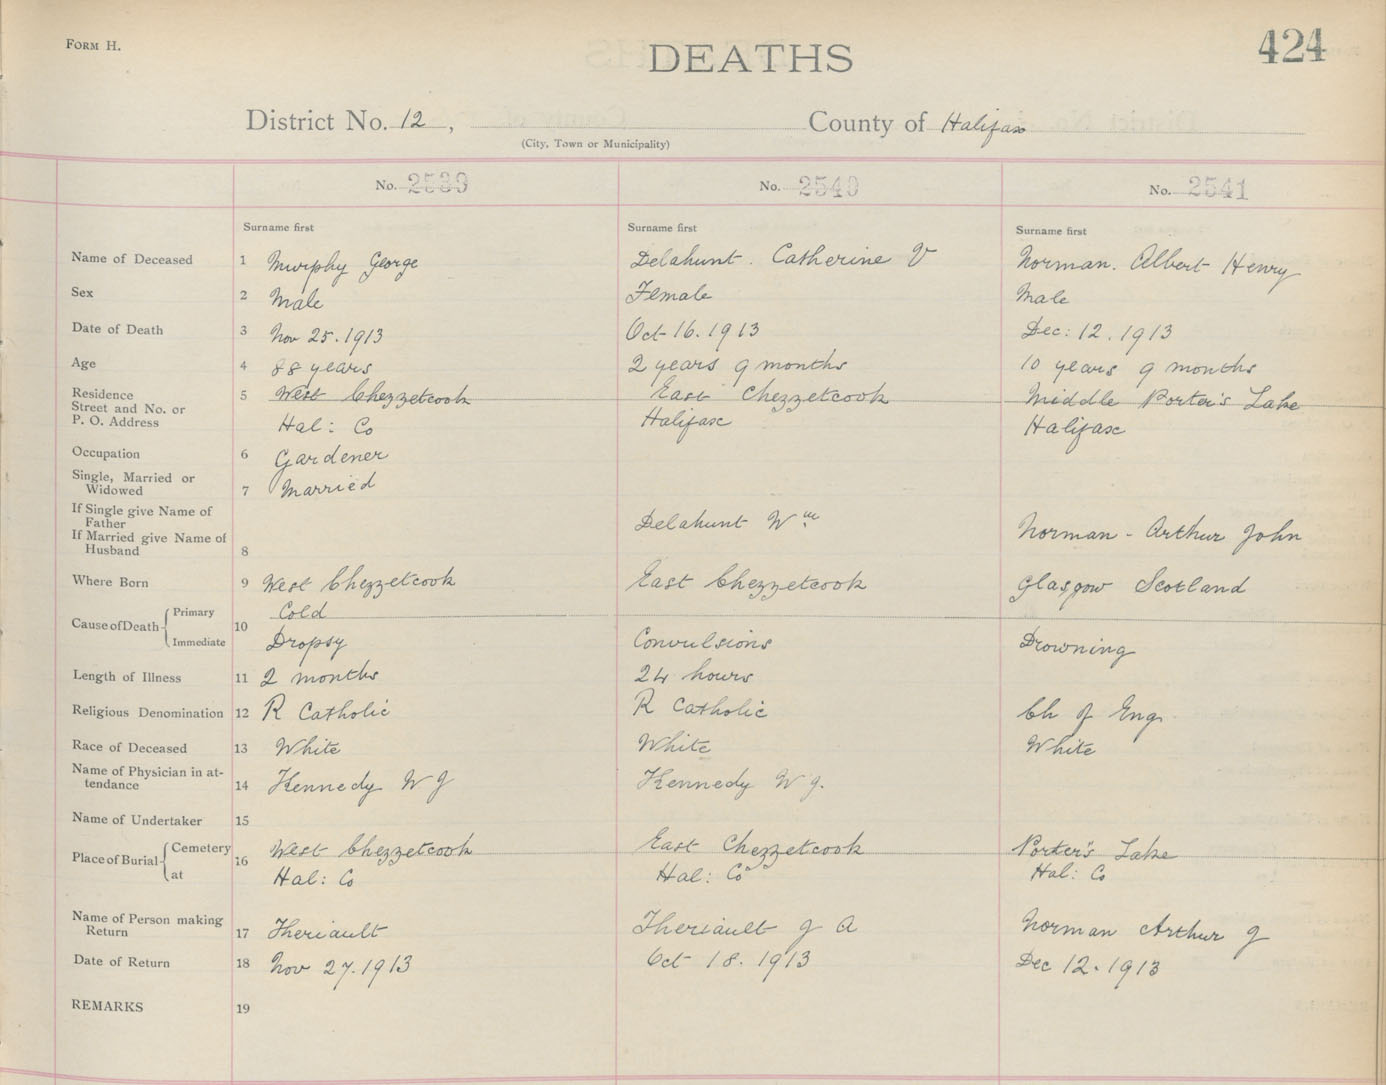 FORM H.
DEATHS
424
District No. 12, County of Halifax
(City, Town or Municipality)
No. 2539 No. 2540 No. 2541
Surname first Surname first Surname first
Name of Deceased 1 Murphy George Delahunt. Catherine V Norman. Albert Henry
Sex 2 Male Female Male
Date of Death 3 Nov 25. 1913 Oct 16. 1913 Dec: 12. 1913
Age 4 88 years 2 years 9 months 10 years 9 months
Residence 5 West Chezzetcook East Chezzetcook Middle Porter's Lake
Street and No. or
P. O. Address Hal: Co Halifax Halifax
Occupation 6 Gardener
Single, Married or
Widowed 7 Married
If Single give Name of
Father Delahunt Wm Norman - Arthur John
If Married give Name of
Husband 8
Where Born 9 West Chezzetcook East Chezzetcook Glasgow Scotland
Cause of Death Primary 10 Cold
Immediate Dropsy Convulsions Drowning
Length of Illness 11 2 months 24 hours
Religious Denomination 12 R Catholic R Catholic Ch of Eng.
Race of Deceased 13 White White White
Name of Physician in at-
tendance 14 Kennedy W J Kennedy W J.
Name of Undertaker 15
Place of Burial Cemetery 16 West Chezzetcook East Chezzetcook Porter's Lake
at Hal: Co Hal: Co Hal: Co
Name of Person making
Return 17 Theriault Theriault J A Norman Arthur J
Date of Return 18 Nov 27. 1913 Oct 18. 1913 Dec 12. 1913
REMARKS 19